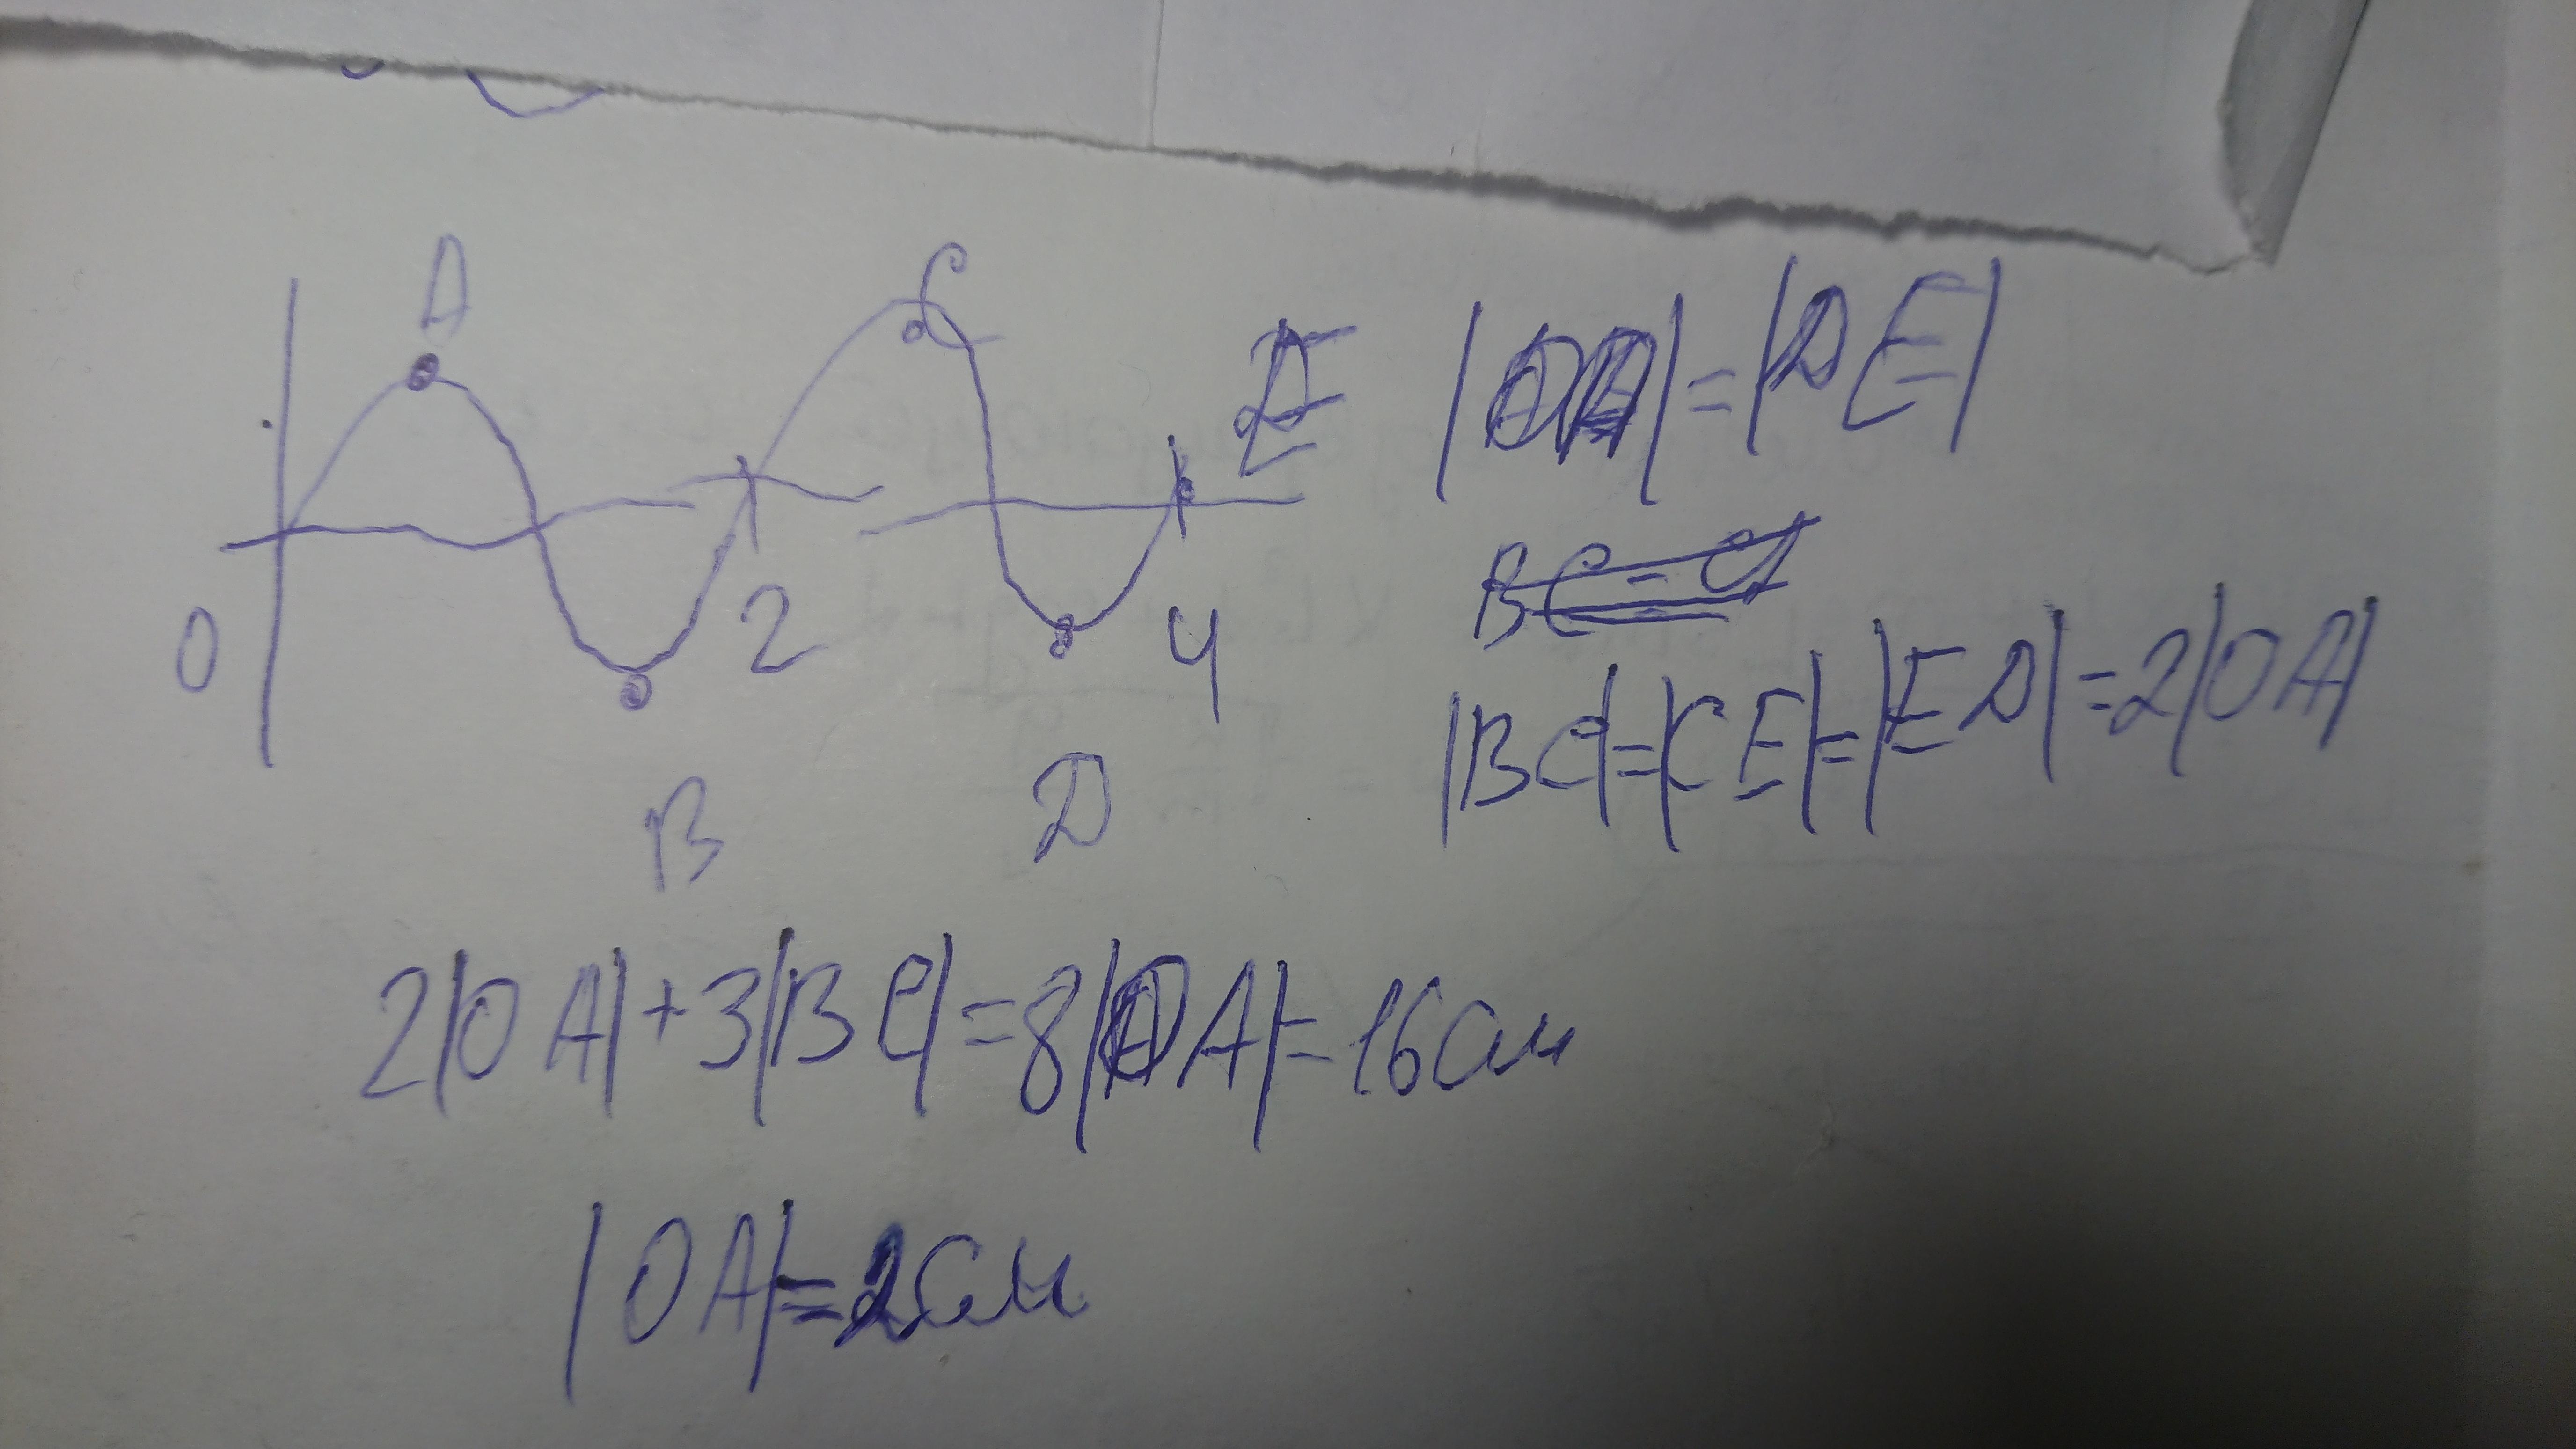 A
C
E
|OA|=|DE|
0
2
4
BC=C
|BC|=|CE|=|ED|=2|OA|
B
D
2|OA|+3|BC|=8|OA|=16см
|OA|=2см